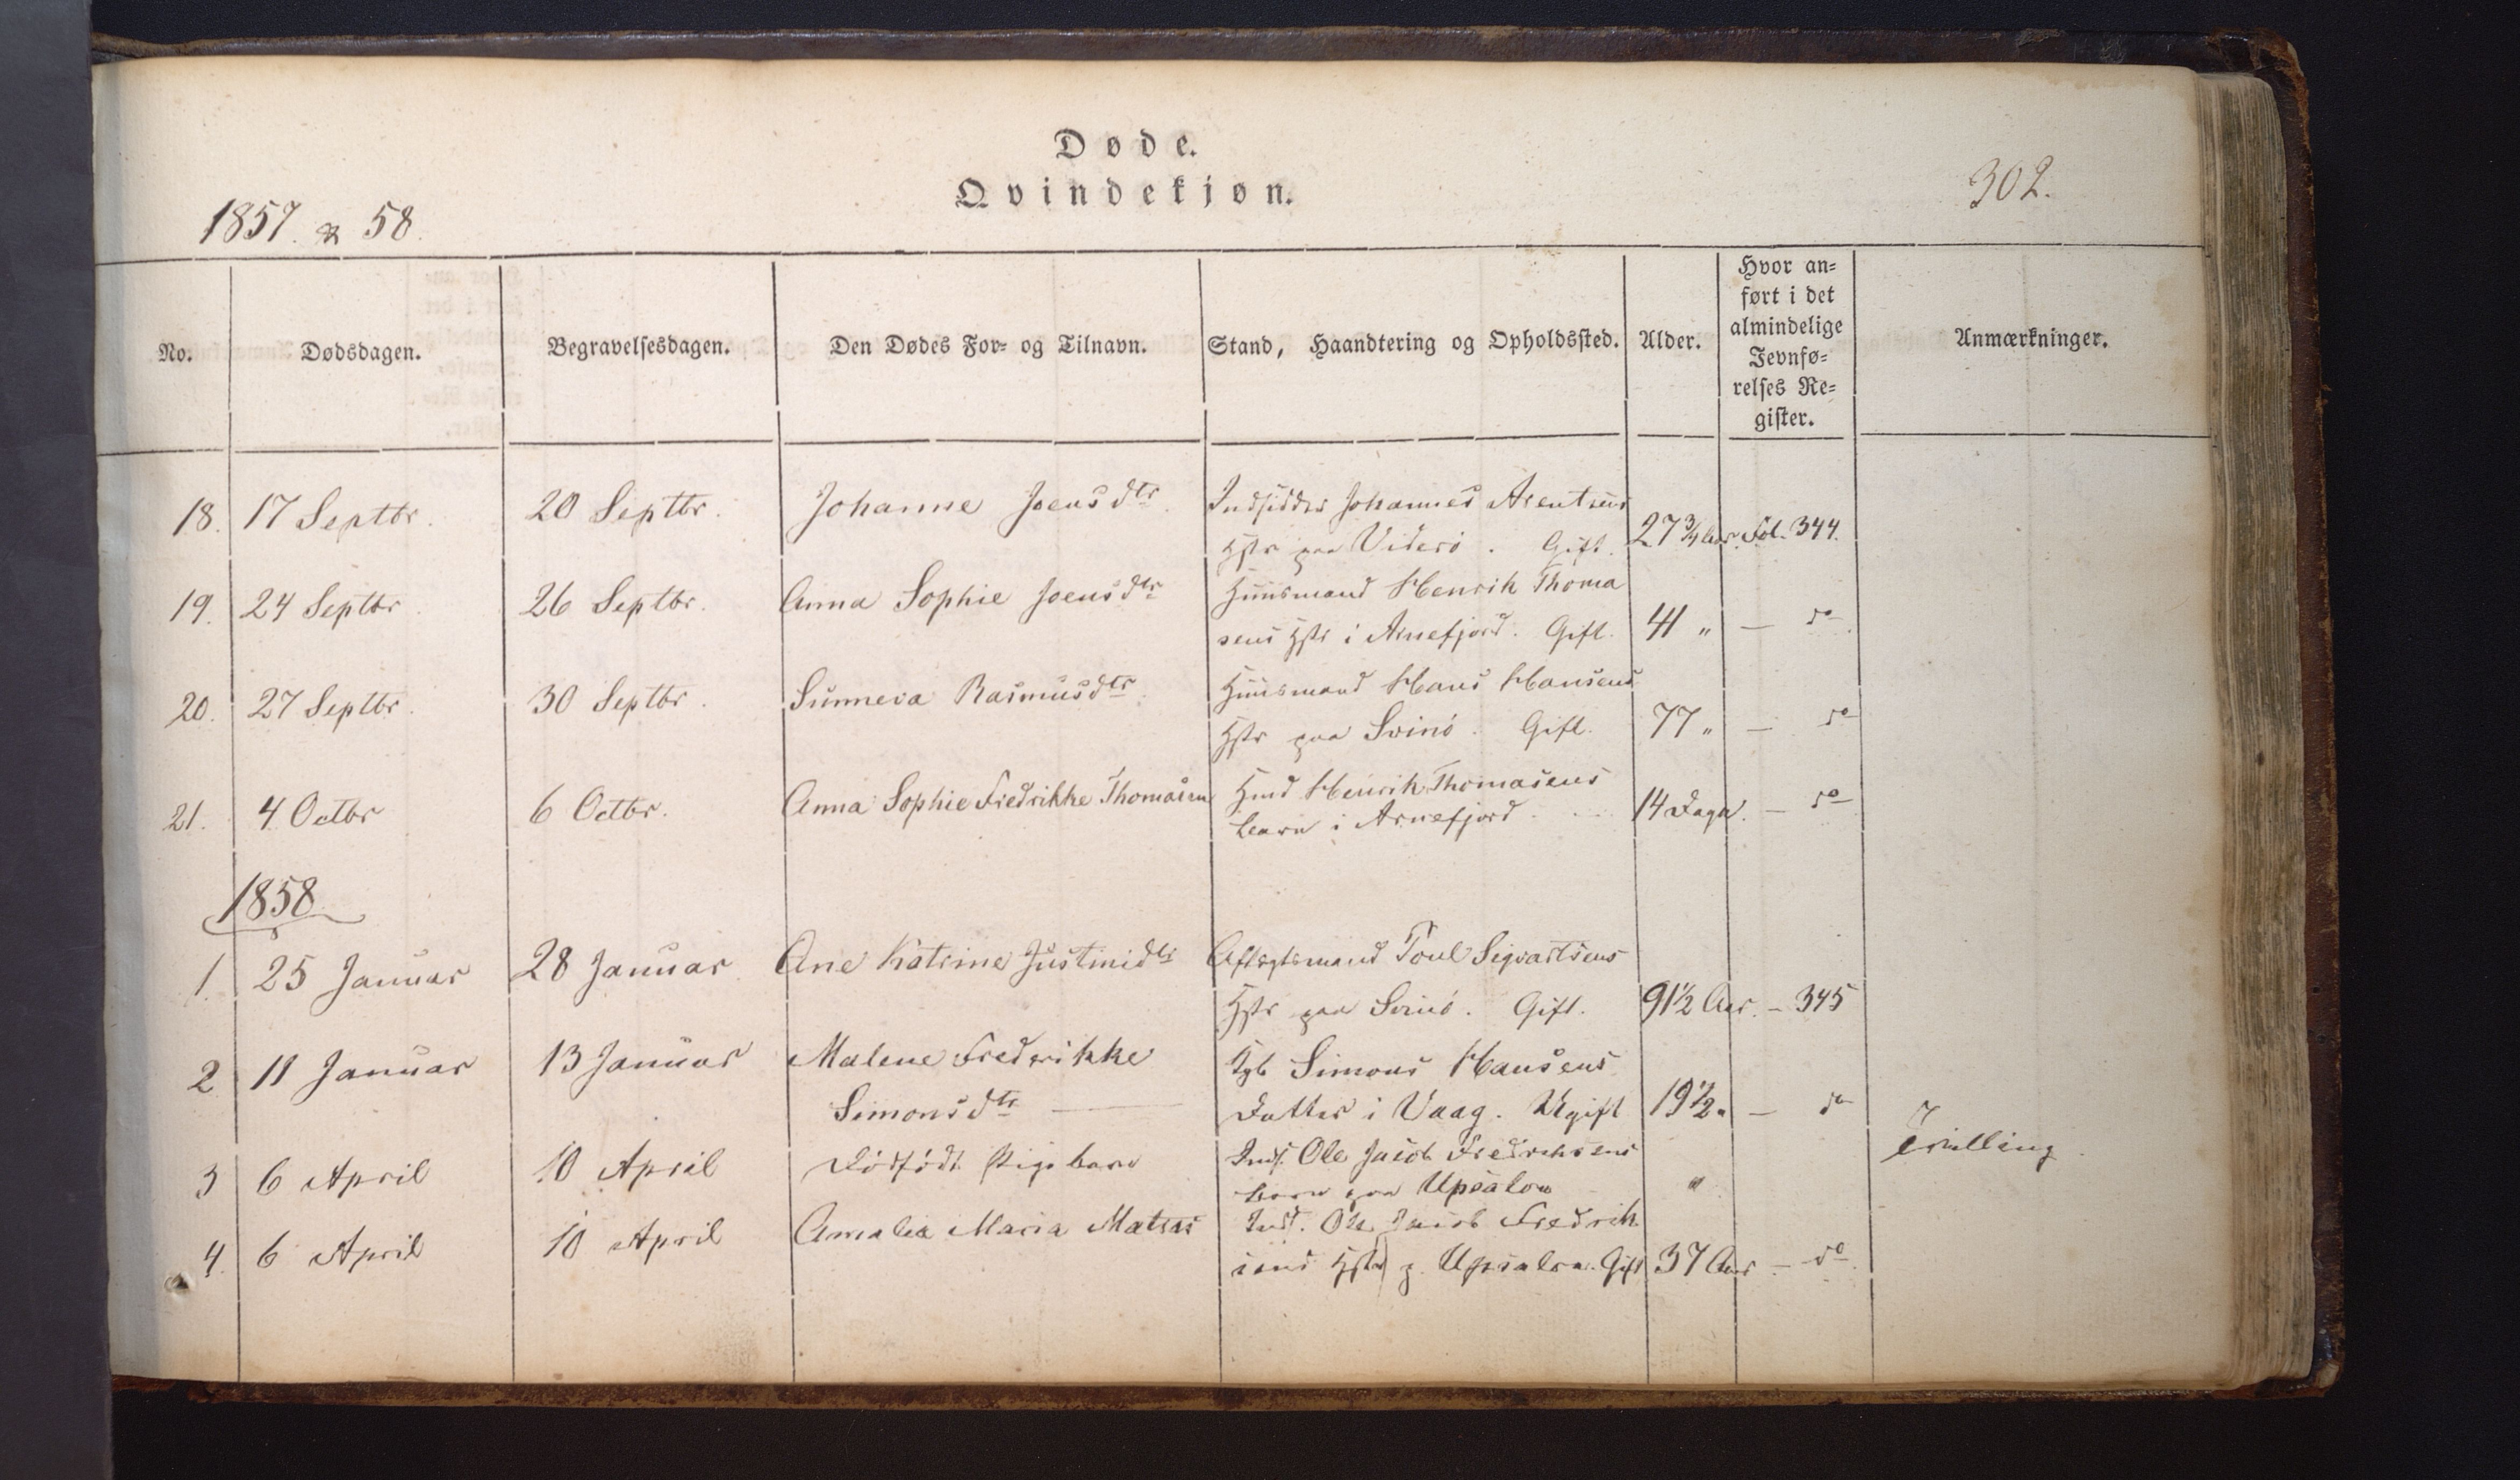 Døde.
Qvindekjøn.
302.
1857. & 58.
No.
Dødsdagen.
Begravelsesdagen.
Den Dødes For- og Tilnavn.
Stand, Haandtering og Opholdssted.
Alder.
Hvor an-
ført i det
almindelige
Jevnfø-
relses Re-
gister.
Anmærkninger.
18. 17 Septbr. 20 Septbr. Johanne Joensdtr. Indsidder Johannes Arentsens
Hstr paa Viderö. Gift. 27 3/4 Aar. Fol. 344.
19. 24 Septbr 26 Septbr. Anna Sophie Joensdtr Huusmand Henrik Thoma
sens Hstr i Arnefjord. Gift. 41 " — do.
20. 27 Septbr. 30 Septbr. Sunneva Rasmusdtr. Huusmand Hans Hansens
Hstr paa Svinö. Gift. 77 " — do
21. 4 Octbr 6 Octbr. Anna Sophie Fredrikke Thomasen Hmd Henrik Thomasens
barn i Arnefjord. 14 Dage. — do
1858
1. 25 Januar 28 Januar Ane Katrine Justinidtr Aftægtsmand Poul Sigvartsens
Hstr paa Svinö. Gift. 91 1/2 Aar. — 345
2 11 Januar 13 Januar Malene Frederikke Kgb Simons Hansens
Simonsdtr — Datter i Vaag. Ugift 19 1/2 " — do
3 6 April 10 April Dödfödt Pigebarn Inds. Ole Jacob Fredriksens
barn paa Upsalon " Trilling.
4. 6 April 10 April Amalia Maria Matras Inds. Ole Jacob Fredrik
sens Hstr p. Upsalon. Gift 37 Aar — do.